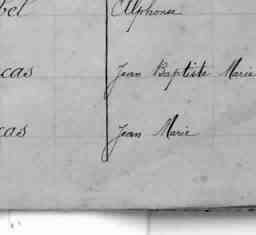 bel Alphonse
cas Jean Baptiste Marie
cas Jean Marie